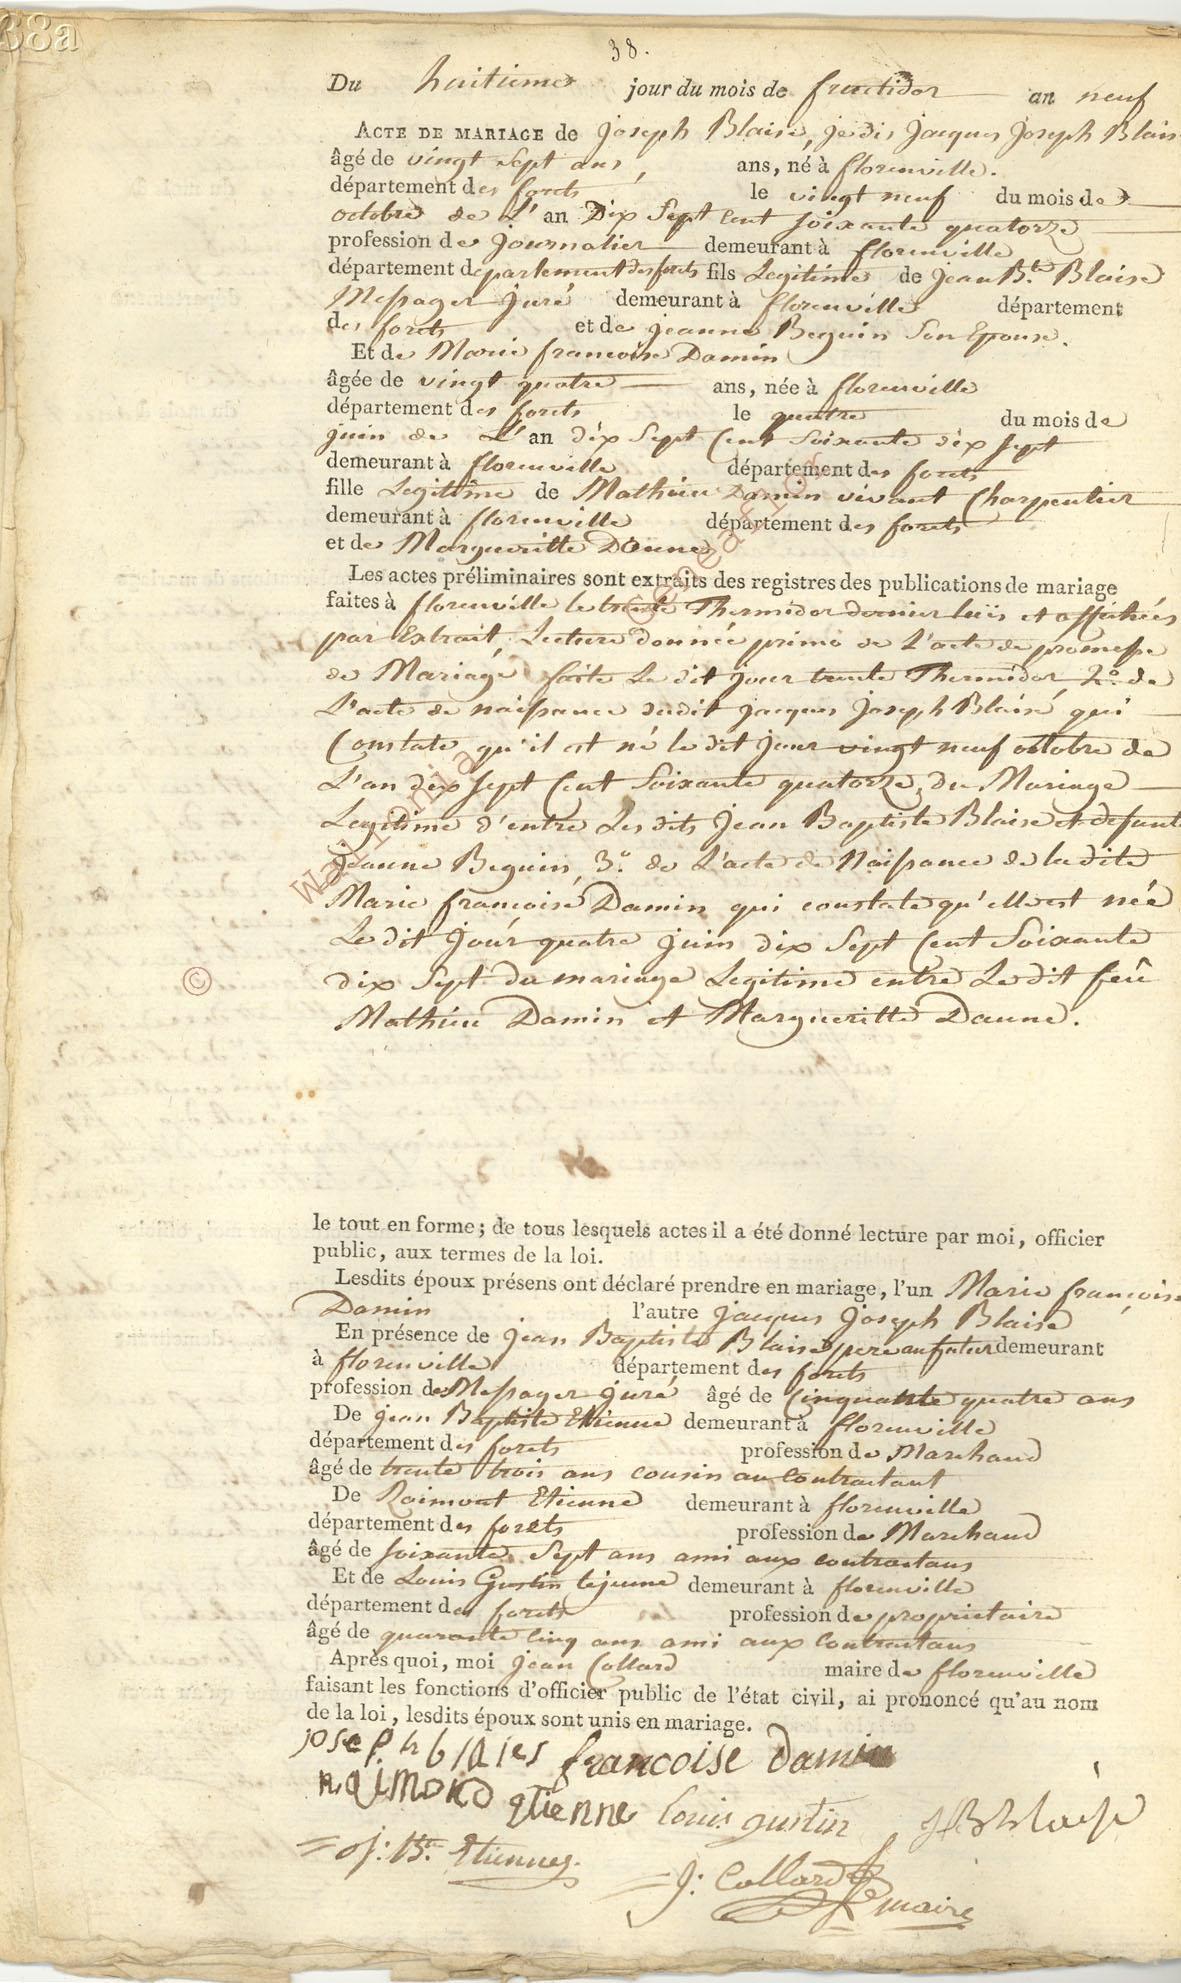 38a
38.
Du huitieme jour du mois de fructidor an neuf
ACTE DE MARIAGE de Joseph Blaise, je dis Jacques Joseph Blais
âgé de vingt Sept ans, ans, né à florenville.
département des forets le vingt neuf du mois de
octobre de L'an Dix Sept Cent Soixante quatorze
profession de Journalier demeurant à florenville
département departement des forets fils Legitime de Jean Bte. Blaise
Messager juré demeurant à florenville département
des forets et de Jeanne Beguin Son Epouse.
Et de Marie francoise Damin
âgée de vingt quatre ans, née à florenville
département des forets le quatre du mois de
juin de L'an dix Sept Cent Soixante dix Sept
demeurant à florenville département des forets
fille Legitime de Mathieu Damin vivant Charpentier
demeurant à florenville département des forets
et de Margueritte Daune
Les actes préliminaires sont extraits des registres des publications de mariage
faites à florenville le trente Thermidor dernier et affichées
par Extrait, Lecture donnée primo de L'acte de promesse
de Mariage faite Le dit jour trente Thermidor 2o. de
L'acte de naissance dudit Jacques Joseph Blaise qui
Constate qu'il est né le dit Jour vingt neuf octobre de
L'an dix Sept Cent Soixante quatorze, du Mariage
Legitime d'entre Les dits Jean Baptiste Blaise et defunte
Jeanne Beguin, 3o. de L'acte de Naissance de la dite
Marie francoise Damin qui constate qu'elle est née
Le dit Jour quatre juin dix Sept Cent Soixante
dix Sept du mariage Legitime entre Le dit feû
Mathieu Damin et Margueritte Daune.
Wallonia Genealogy
©
le tout en forme; de tous lesquels actes il a été donné lecture par moi, officier
public, aux termes de la loi.
Lesdits époux présens ont déclaré prendre en mariage, l'un Marie françoise
Damin l'autre Jacques Joseph Blaise
En présence de Jean Baptiste Blaise pere au futur demeurant
à florenville département des forets
profession de Messager juré âgé de Cinquante quatre ans
De Jean Baptiste Etienne demeurant à florenville
département des forets profession de Marchand
âgé de trente trois ans cousin au Contractant
De Raimont Etienne demeurant à florenville
département des forets profession de Marchand
âgé de soixante Sept ans ami aux contractans
Et de Louis Gustin lejeune demeurant à florenville
département des forets profession de proprietaire
âgé de quarante Cinq ans ami aux Contractans
Après quoi, moi Jean Collard maire de florenville
faisant les fonctions d'officier public de l'état civil, ai prononcé qu'au nom
de la loi, lesdits époux sont unis en mariage.
joseph blaies francoise damin
raimond etienne Louis gustin JB blaise
J: Bte. Etienne
J: Collard maire